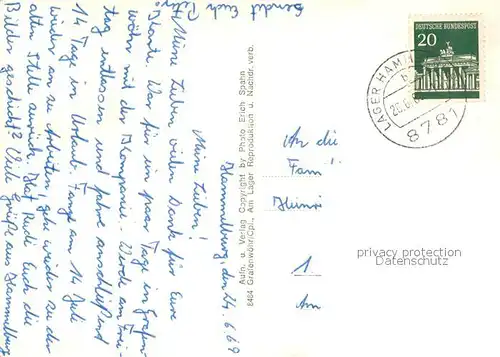 Hammelburg, den 24.6.69
Meine Lieben!
Meine Lieben vielen Dank für Eure
Karte. War für ein paar Tage in Grafen-
wöhr mit der Kompanie. Werde am Frei-
tag entlassen und fahre anschließend
14 Tage in Urlaub. Fange am 14 Juli
wieder an zu Arbeiten, gehe wieder zu der
alten Stelle zurück. Hat Rudi Euch die
Bilder geschickt? Viele Grüße aus Hammelburg
sendet Euch
Aufn. u. Verlag Copyright by Photo Erich Spahn
8484 Grafenwöhr/Opf., Am Lager Reproduktion u. Nachdr. verb.
DEUTSCHE BUNDESPOST
20
LAGER HAM
8781
An die
Fam.
Heinri
1
Am
privacy protection
Datenschutz